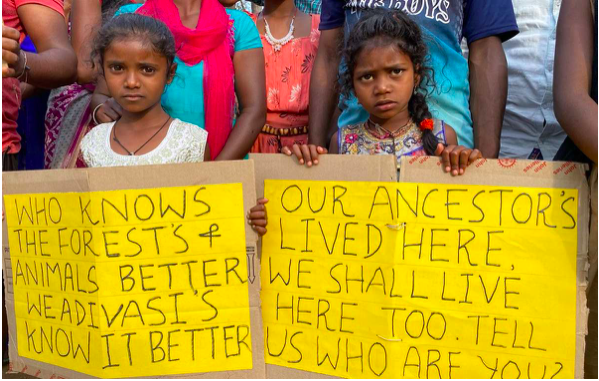 BOYS
WHO KNOWS
THE FOREST'S &
ANIMALS BETTER
WE ADIVASI'S
KNOW IT BETTER
OUR ANCESTOR'S
LIVED HERE,
WE SHALL LIVE
HERE TOO. TELL
US WHO ARE YOU?